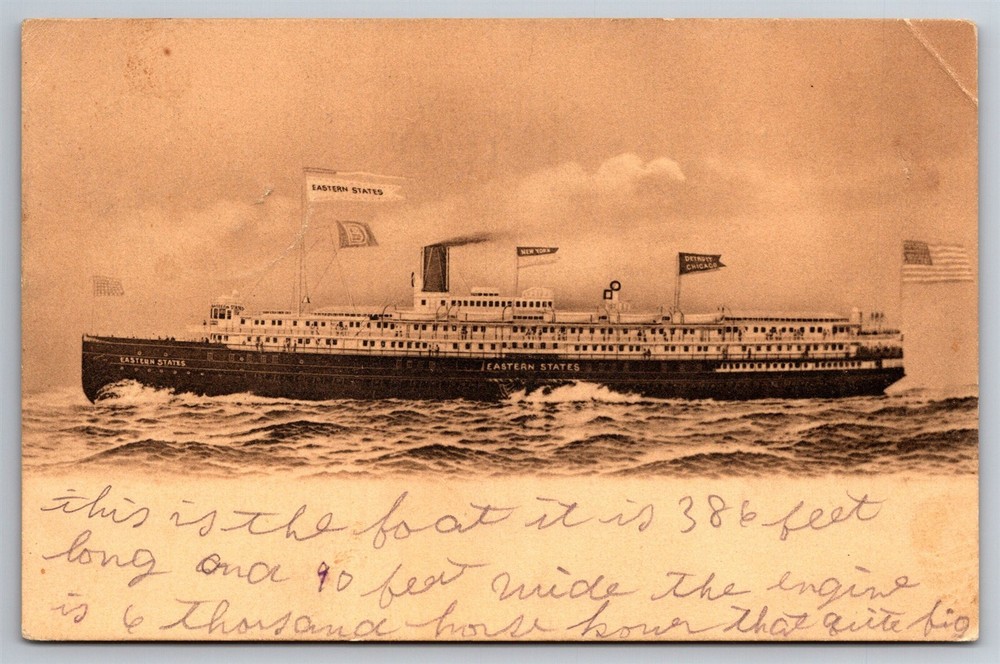 EASTERN STATES
D
NEW YORK
DETROIT
CHICAGO
EASTERN STATES
EASTERN STATES
this is the foat it is 386 feet
long and 90 feet wide the engine
is 6 thousand horse power that quite big